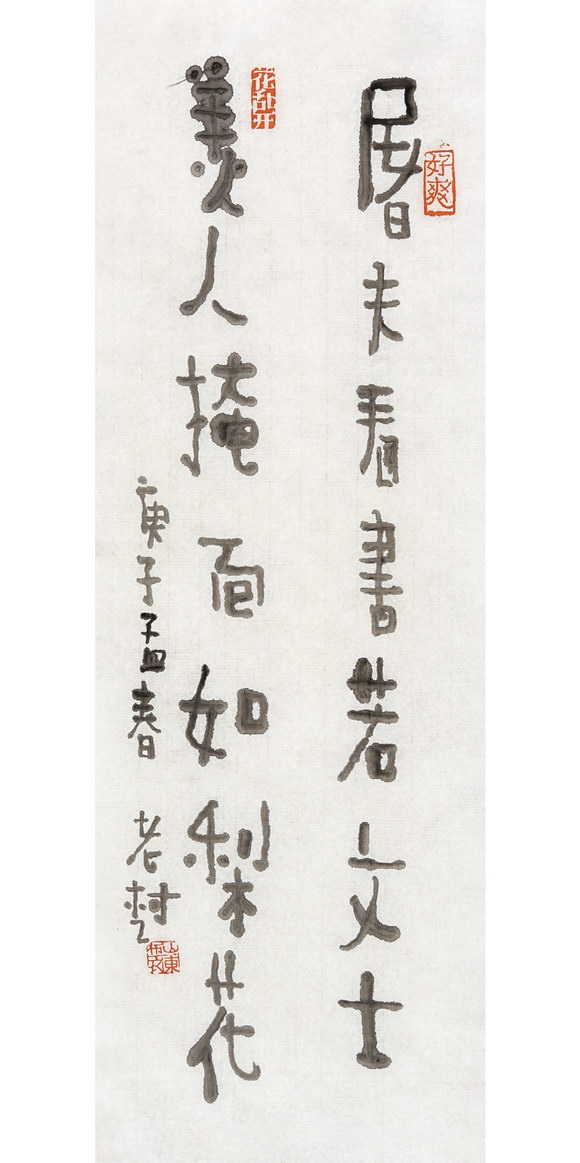 好爽
屠夫看書若文士
花乱开
美人掩面如梨花
庚子孟春 老村